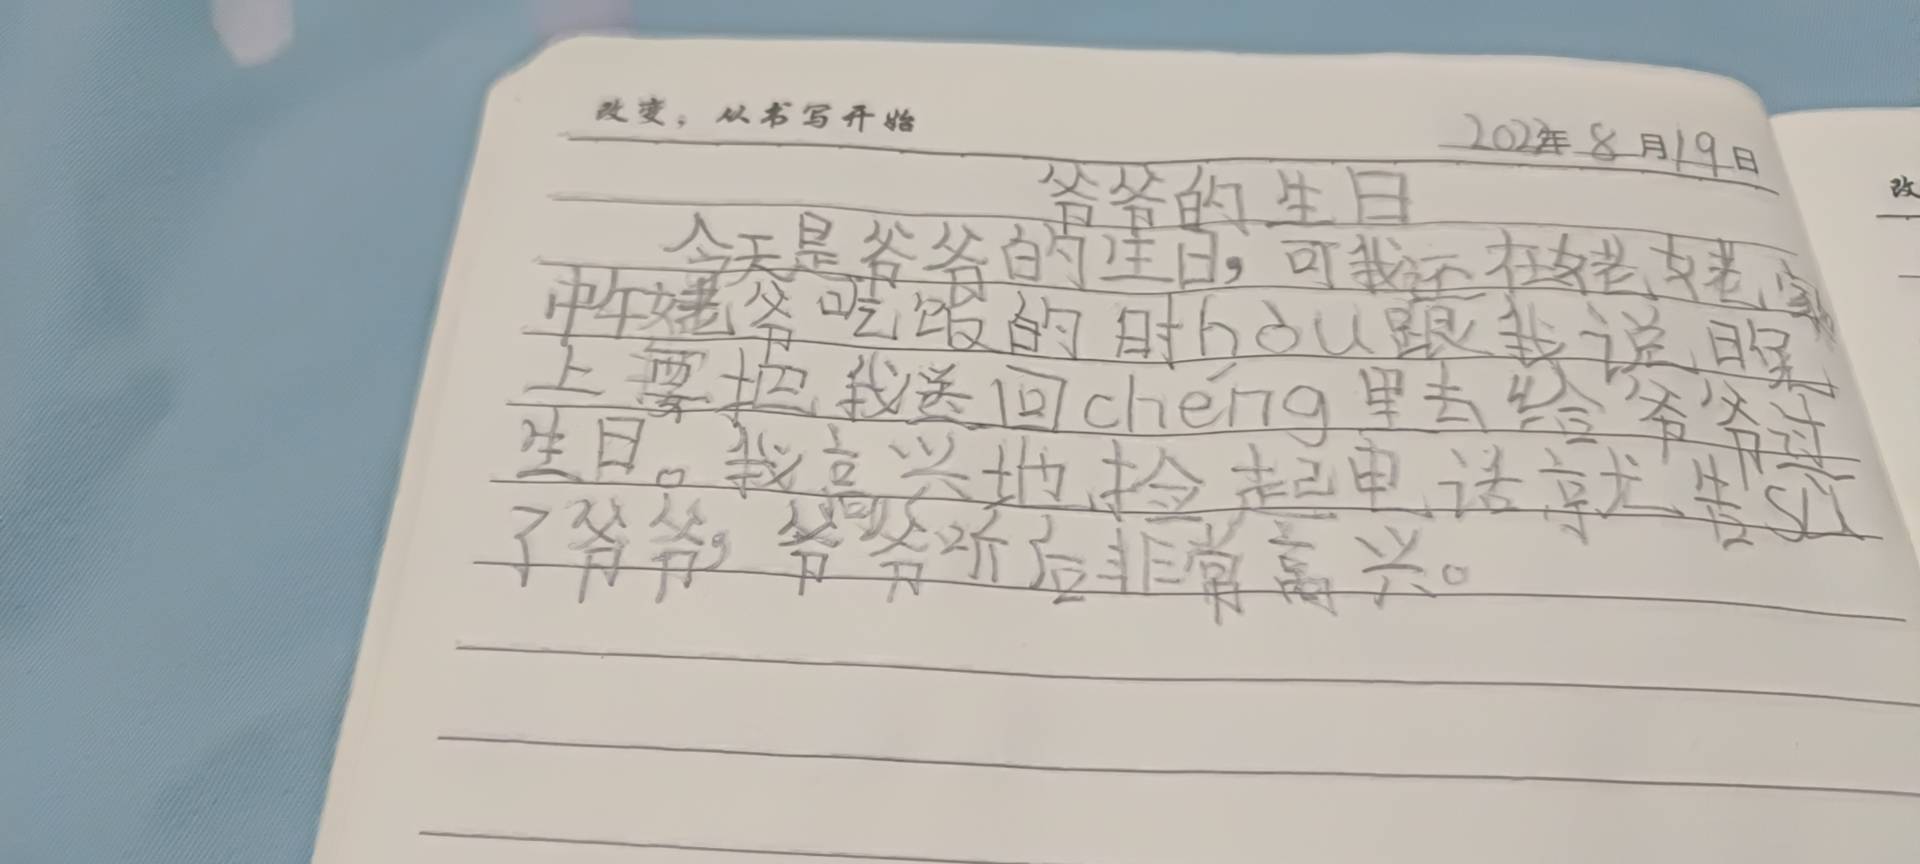 改变，从书写开始
2022年8月19日
爷爷的生日
今天是爷爷的生日，可我还在姥姥家，
中午姥爷吃饭的时hòu跟我说，晚
上要把我送回chéng里去给爷爷过
生日。我高兴地捡起电话就告sù
了爷爷，爷爷听后非常高兴。
改